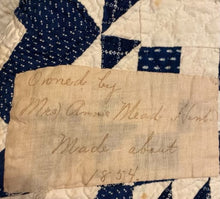 Owned by
(Mrs) Annie Mead Hunt
Made about
1854